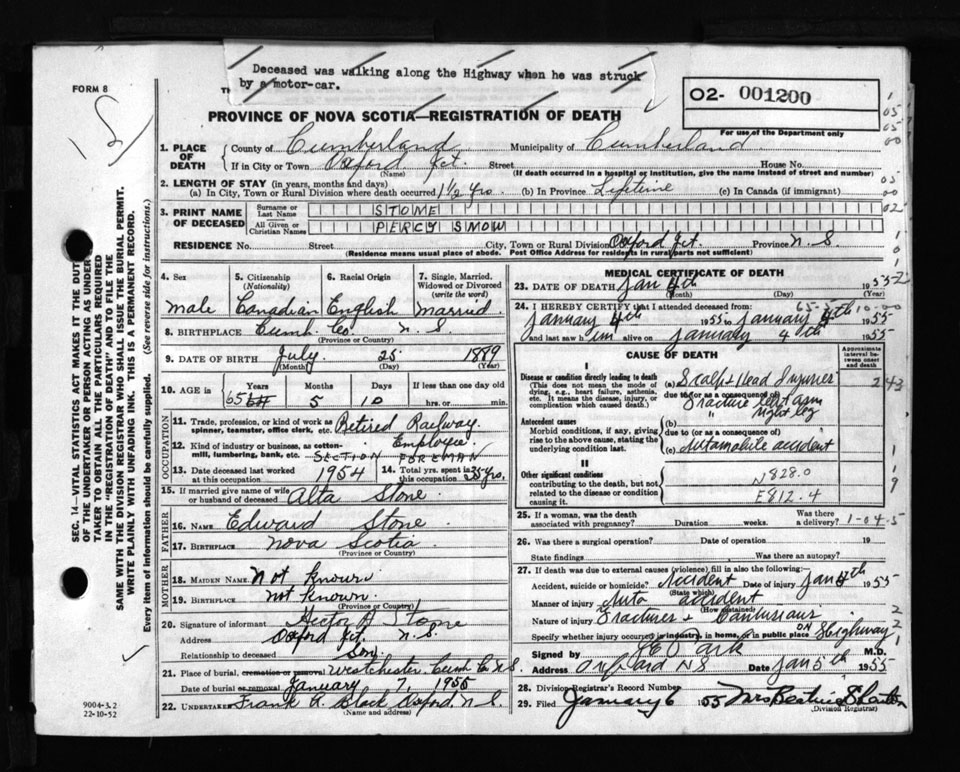 Deceased was walking along the Highway when he was struck
by a motor-car.
FORM 8
O2- 001200
For use of the Department only
PROVINCE OF NOVA SCOTIA—REGISTRATION OF DEATH
1. PLACE OF DEATH
County of Cumberland Municipality of Cumberland
If in City or Town Oxford Jct. Street House No.
(Name) (If death occurred in a hospital or institution, give the name instead of street and number)
2. LENGTH OF STAY (in years, months and days)
(a) In City, Town or Rural Division where death occurred 1½ yrs. (b) In Province Lifetime (c) In Canada (if immigrant)
3. PRINT NAME OF DECEASED
Surname or Last Name STONE
All Given or Christian Names PERCY SNOW
RESIDENCE No. Street City, Town or Rural Division Oxford Jct. Province N.S.
(Residence means usual place of abode. Post Office Address for residents in rural parts not sufficient)
4. Sex
male
5. Citizenship (Nationality)
Canadian
6. Racial Origin
English
7. Single, Married, Widowed or Divorced (write the word)
Married.
8. BIRTHPLACE Cumb. Co. N.S.
(Province or Country)
9. DATE OF BIRTH July 25 1889
(Month) (Day) (Year)
10. AGE in Years Months Days If less than one day old
65 5 10 hrs. or min.
OCCUPATION
11. Trade, profession, or kind of work as spinner, teamster, office clerk, etc. Retired Railway
Employee
12. Kind of industry or business, as cotton-mill, lumbering, bank, etc. SECTION FOREMAN
13. Date deceased last worked at this occupation 1954
14. Total yrs. spent in this occupation 35 yrs.
15. If married give name of wife or husband of deceased Alta Stone
FATHER
16. NAME Edward Stone
17. BIRTHPLACE Nova Scotia
(Province or Country)
MOTHER
18. MAIDEN NAME Not Known
19. BIRTHPLACE not Known
(Province or Country)
20. Signature of informant Hector A Stone
Address Oxford Jct. N.S.
Relationship to deceased Son
21. Place of burial, cremation or removal Westchester, Cumb Co N.S.
Date of burial or removal January 7, 1955
22. UNDERTAKER Frank A. Black Oxford, N.S.
(Name and address)
MEDICAL CERTIFICATE OF DEATH
23. DATE OF DEATH Jan 4th 1955
(Month) (Day) (Year)
24. I HEREBY CERTIFY that I attended deceased from
January 4th 1955 to January 1955
and last saw him alive on January 4th 1955
CAUSE OF DEATH
Approximate interval between onset and death
I
Disease or condition directly leading to death
(This does not mean the mode of dying, e.g., heart failure, asthenia, etc. It means the disease, injury, or complication which caused death.)
(a) Scalp + Head Injuries
due to (or as a consequence of)
Fracture left arm
" right leg
Antecedent causes
Morbid conditions, if any, giving rise to the above cause, stating the underlying condition last.
(b)
due to (or as a consequence of)
(c) Automobile accident
II
Other significant conditions contributing to the death, but not related to the disease or condition causing it.
N828.0
E812.4
25. If a woman, was the death associated with pregnancy? Duration weeks. Was there a delivery?
1-04-5
26. Was there a surgical operation? Date of operation 19
State findings Was there an autopsy?
27. If death was due to external causes (violence) fill in also the following:
Accident, suicide or homicide? Accident Date of injury Jan 4th 1955
(State which)
Manner of injury Auto accident
(How sustained)
Nature of injury Fractures + Contusions
Specify whether injury occurred in industry, in home, or in public place ON Highway
Signed by M.D.
Address Oxford NS Date Jan 5th 1955
28. Division Registrar's Record Number
29. Filed January 6 1955 Mrs Beatrice
(Division Registrar)
SEC. 14—VITAL STATISTICS ACT MAKES IT THE DUTY
OF THE UNDERTAKER OR PERSON ACTING AS UNDER-
TAKER TO OBTAIN ALL THE PARTICULARS REQUIRED
IN THE "REGISTRATION OF DEATH" AND TO FILE THE
SAME WITH THE DIVISION REGISTRAR WHO SHALL ISSUE THE BURIAL PERMIT.
WRITE PLAINLY WITH UNFADING INK. THIS IS A PERMANENT RECORD.
Every item of information should be carefully supplied. (See reverse side for instructions.)
9004-3.2
22-10-52